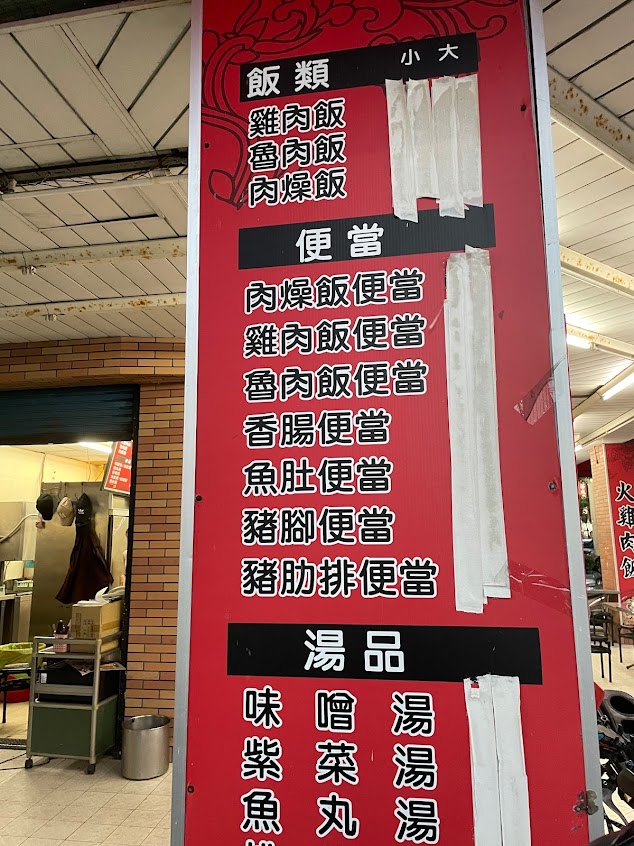 飯類 小 大
雞肉飯
魯肉飯
肉燥飯
便當
肉燥飯便當
雞肉飯便當
魯肉飯便當
香腸便當
魚肚便當
豬腳便當
豬肋排便當
湯品
味噌湯
紫菜湯
魚丸湯
火雞肉飯